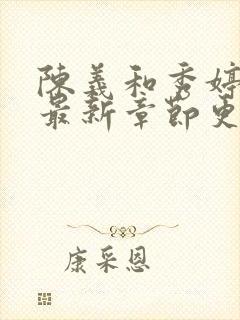 陳義和秀婷
最新章節更
康采恩